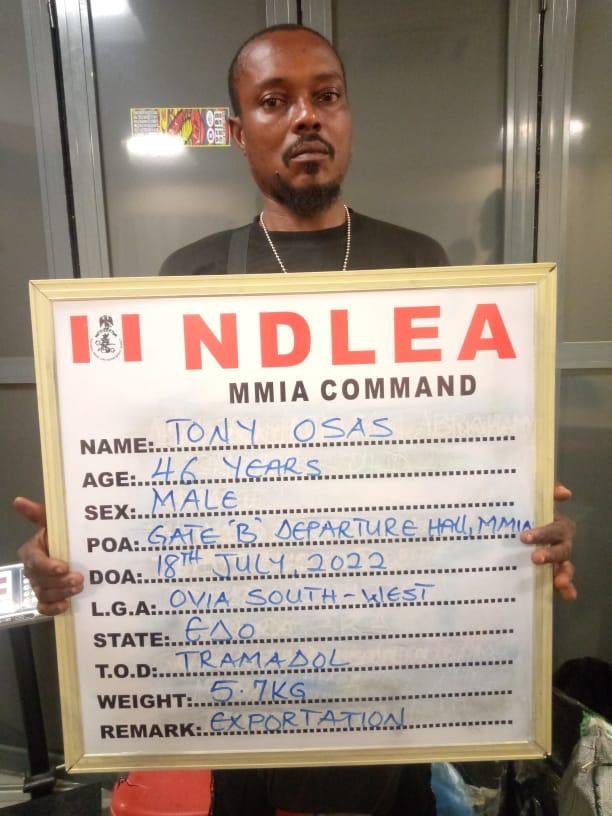 NDLEA
MMIA COMMAND
NAME: TONY OSAS
AGE: 46 YEARS
SEX: MALE
POA: GATE 'B' DEPARTURE HALL, MMIA
DOA: 18TH JULY, 2022
L.G.A: OVIA SOUTH-WEST
STATE: EDO
T.O.D: TRAMADOL
WEIGHT: 5.7KG
REMARK: EXPORTATION